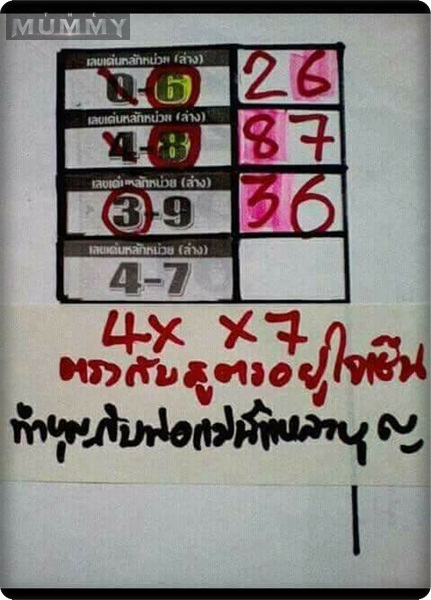 THE
MUMMY
เลขเด่นหลักหน่วย (ล่าง)
0-6 26
เลขเด่นหลักหน่วย (ล่าง)
4-8 87
เลขเด่นหลักหน่วย (ล่าง)
3-9 36
เลขเด่นหลักหน่วย (ล่าง)
4-7
4x x7
ตรงกับสูตรอยู่ใจเย็น
ทำบุญกับพ่อแม่นี่แหละบุญ